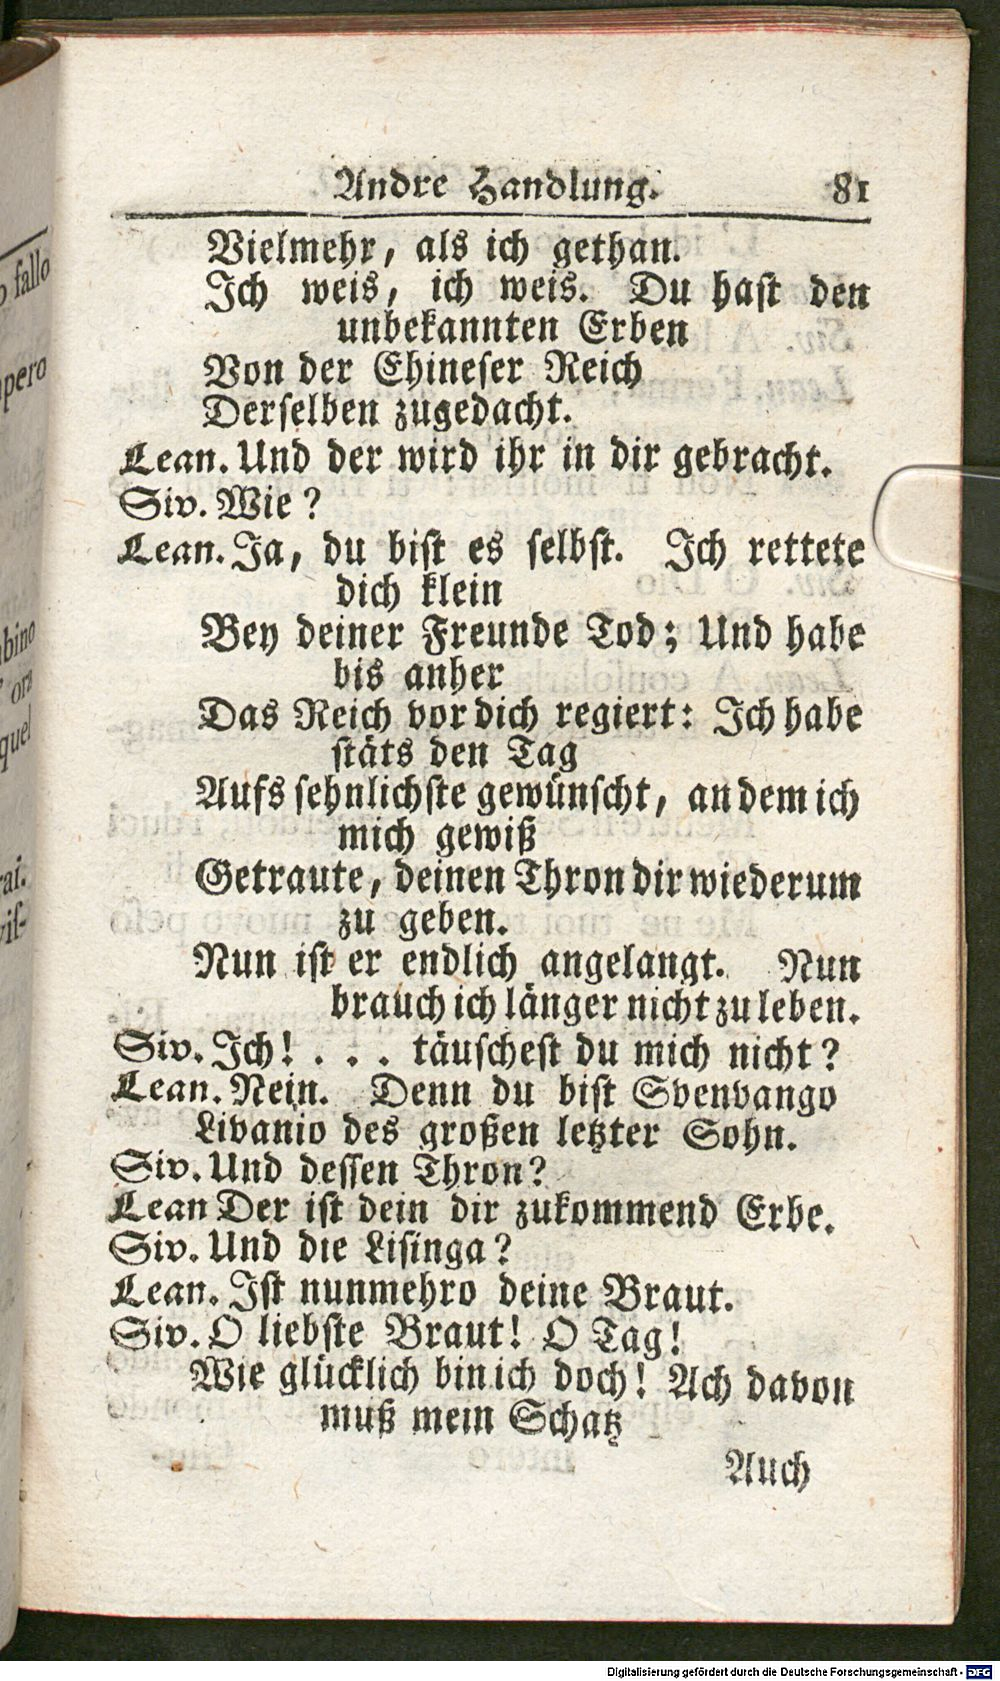 Andre Handlung. 81
Vielmehr, als ich gethan.
Ich weis, ich weis. Du hast den
unbekannten Erben
Von der Chineser Reich
Derselben zugedacht.
Lean. Und der wird ihr in dir gebracht.
Siv. Wie?
Lean. Ja, du bist es selbst. Ich rettete
dich klein
Bey deiner Freunde Tod; Und habe
bis anher
Das Reich vor dich regiert: Ich habe
stäts den Tag
Aufs sehnlichste gewünscht, an dem ich
mich gewiß
Getraute, deinen Thron dir wiederum
zu geben.
Nun ist er endlich angelangt. Nun
brauch ich länger nicht zu leben.
Siv. Ich! . . . täuschest du mich nicht?
Lean. Nein. Denn du bist Svenvango
Livanio des großen letzter Sohn.
Siv. Und dessen Thron?
Lean Der ist dein dir zukommend Erbe.
Siv. Und die Lisinga?
Lean. Ist nunmehro deine Braut.
Siv. O liebste Braut! O Tag!
Wie glücklich bin ich doch! Ach davon
muß mein Schatz
Auch
fallo
pero
bino
ora
quel
rai.
Digitalisierung gefördert durch die Deutsche Forschungsgemeinschaft - DFG